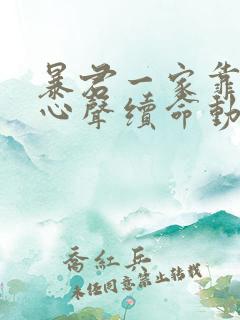 暴君一家靠
心聲續命動
喬紅兵
未經同意禁止轉載